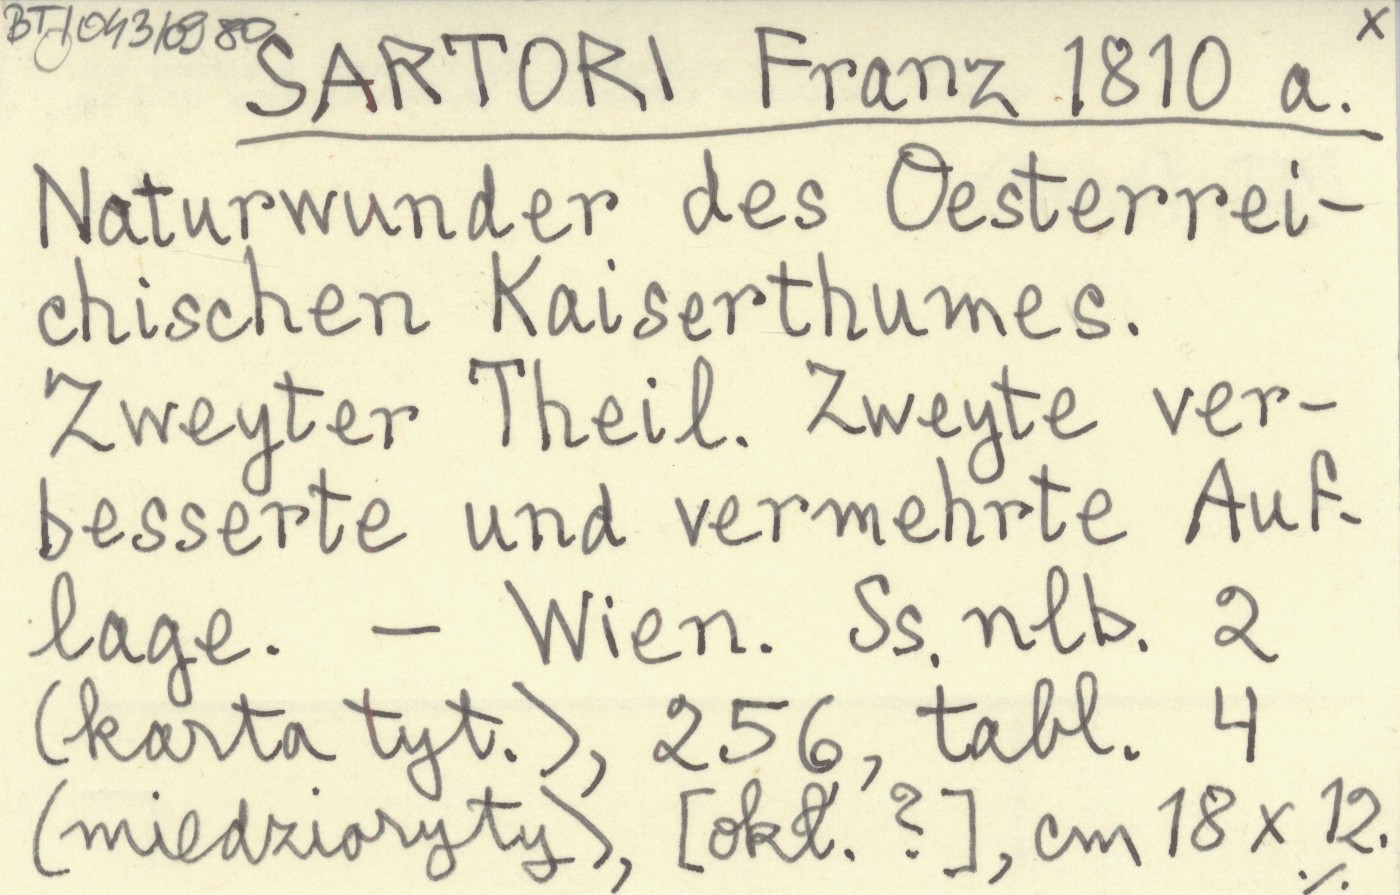 BT/043/0980
x
SARTORI Franz 1810 a.
Naturwunder des Oesterrei-
chischen Kaiserthumes.
Zweyter Theil. Zweyte ver-
besserte und vermehrte Auf-
lage. — Wien. Ss. nlb. 2
(karta tyt.), 256, tabl. 4
(miedzioryty), [okł. ?], cm 18 x 12.
./.